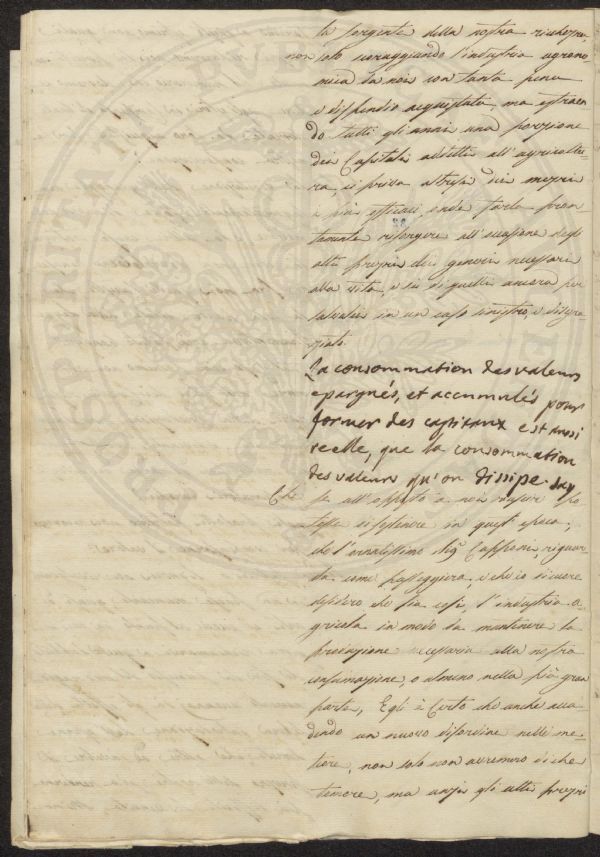 la sorgente della nostra ricchezza,
non solo scoraggiando l'industria agrono-
mica da noi con tanta pena
e dispendio acquistata, ma estraen-
do tutti gli anni una porzione
dei Capitali addetti all'agricoltu-
ra, si priva altresì dei mezzi
i più efficaci, onde farla pron-
tamente risorgere all'occasione degli
alti prezzi dei generi necessari
alla vita, e di quelli ancora per
salvarli in un caso sinistro, e disgra-
ziato.
La consommation des valeurs
epargnés, et accumulés pour
former des capitaux est aussi
reelle, que la consommation
des valeurs qu'on dissipe. Say
Che se all'opposto a noi riesce
sostenere in quest'epoca,
che l'ornatissimo Sig. Capponi, riguar-
da come passeggiera, e che io di cuore
desidero che sia così, l'industria a-
gricola in modo da mantenere la
produzione necessaria alla nostra
consumazione, o almeno nella più gran
parte, Egli è certo che anche acca-
dendo un nuovo disordine nelle me-
tiere, non solo non avremo di che
temere, ma anzi gli alti prezzi